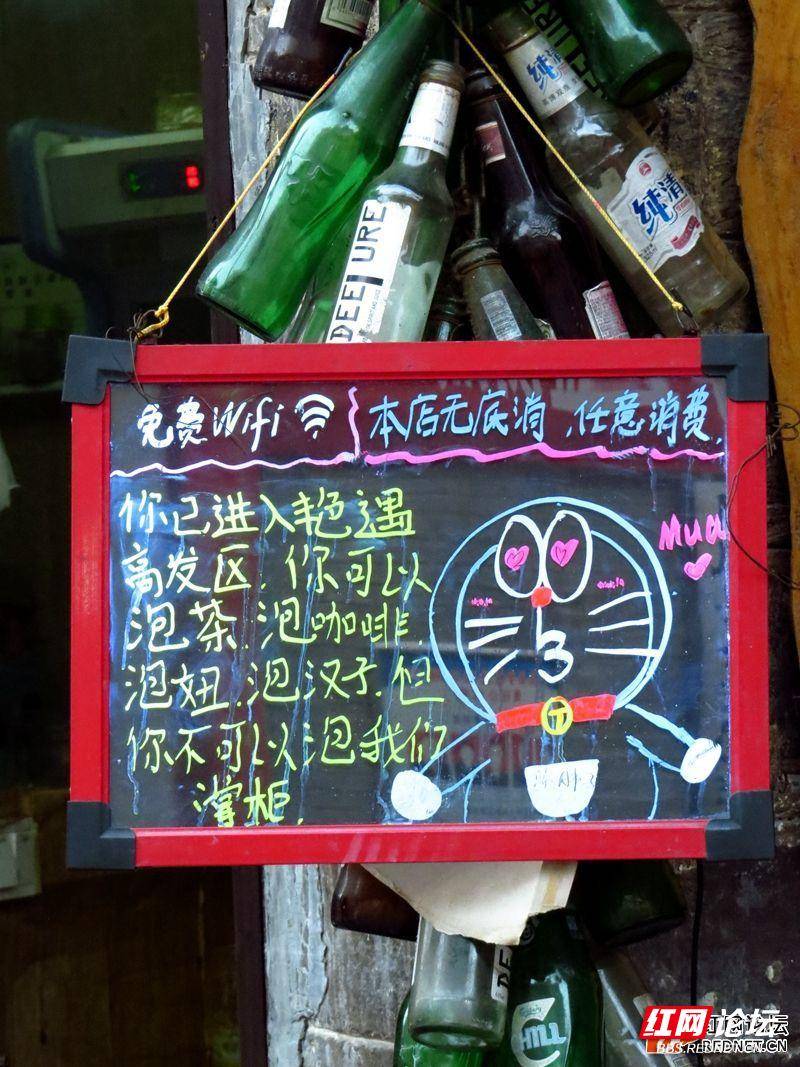 纯清
纯清
DEE URE
免费Wifi
本店无底消,任意消费.
你已进入艳遇
高发区.你可以
泡茶.泡咖啡.
泡妞.泡汉子.但
你不可以泡我们
掌柜.
Mua
3
CHILL
红网论坛
BBS.REDNET.CN
REDNET.CN